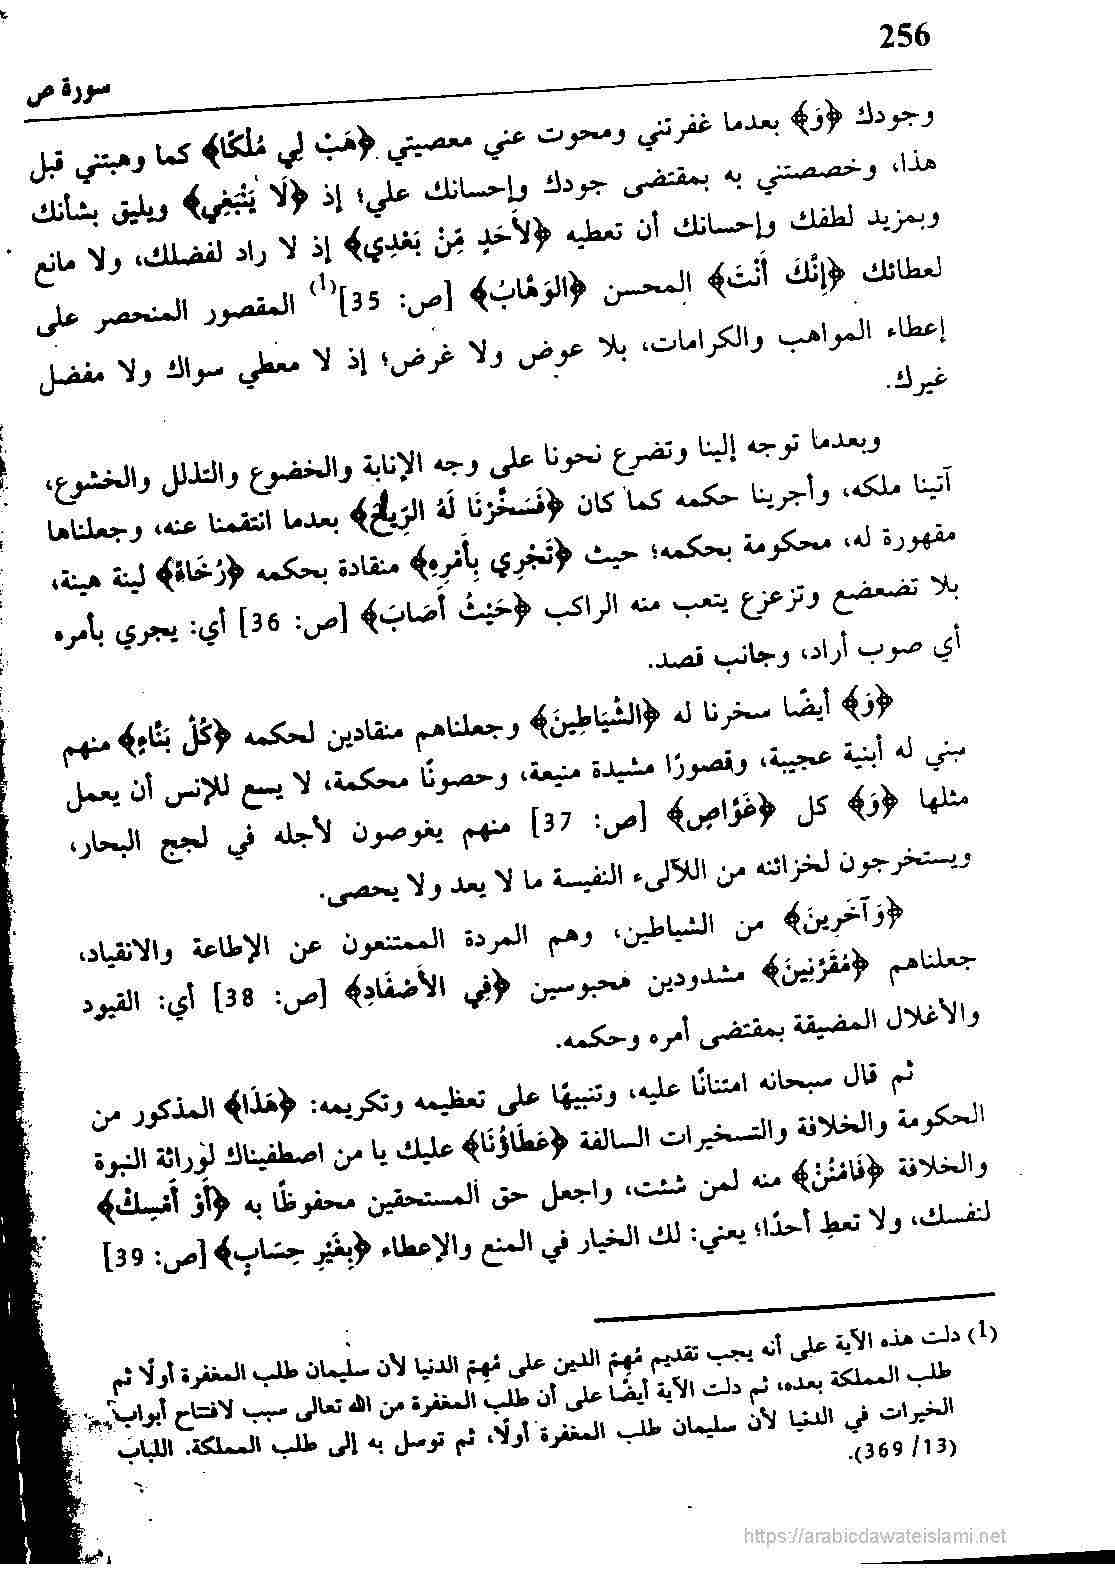 256
سورة ص
وجودك ﴿وَ﴾ بعدما غفرتني ومحوت عني معصيتي ﴿هَبْ لِي مُلْكًا﴾ كما وهبتني قبل
هذا، وخصصتني به بمقتضى جودك وإحسانك علي؛ إذ ﴿لَا يَنْبَغِي﴾ ويليق بشأنك
وبمزيد لطفك وإحسانك أن تعطيه ﴿لأَحَدٍ مِّنْ بَعْدِي﴾ إذ لا راد لفضلك، ولا مانع
لعطائك ﴿إِنَّكَ أَنْتَ﴾ المحسن ﴿الوَهَّابُ﴾ [ص: 35](1) المقصور المنحصر على
إعطاء المواهب والكرامات، بلا عوض ولا غرض؛ إذ لا معطي سواك ولا مفضل
غيرك.
وبعدما توجه إلينا وتضرع نحونا على وجه الإنابة والخضوع والتذلل والخشوع،
آتينا ملكه، وأجرينا حكمه كما كان ﴿فَسَخَّرْنَا لَهُ الرِّيحَ﴾ بعدما انتقمنا عنه، وجعلناها
مقهورة له، محكومة بحكمه؛ حيث ﴿تَجْرِي بِأَمْرِهِ﴾ منقادة بحكمه ﴿رُخَاءً﴾ لينة هينة،
بلا تضعضع وتزعزع يتعب منه الراكب ﴿حَيْثُ أَصَابَ﴾ [ص: 36] أي: يجري بأمره
أي صوب أراد، وجانب قصد.
﴿وَ﴾ أيضًا سخرنا له ﴿الشَّيَاطِينَ﴾ وجعلناهم منقادين لحكمه ﴿كُلَّ بَنَّاءٍ﴾ منهم
يبني له أبنية عجيبة، وقصورًا مشيدة منيعة، وحصونًا محكمة، لا يسع للإنس أن يعمل
مثلها ﴿وَ﴾ كل ﴿غَوَّاصٍ﴾ [ص: 37] منهم يغوصون لأجله في لجج البحار،
ويستخرجون لخزائنه من اللآلىء النفيسة ما لا يعد ولا يحصى.
﴿وَآخَرِينَ﴾ من الشياطين، وهم المردة الممتنعون عن الإطاعة والانقياد،
جعلناهم ﴿مُقَرَّنِينَ﴾ مشدودين محبوسين ﴿فِي الأَصْفَادِ﴾ [ص: 38] أي: القيود
والأغلال المضيقة بمقتضى أمره وحكمه.
ثم قال سبحانه امتنانًا عليه، وتنبيهًا على تعظيمه وتكريمه: ﴿هَذَا﴾ المذكور من
الحكومة والخلافة والتسخيرات السالفة ﴿عَطَاؤُنَا﴾ عليك يا من اصطفيناك لوراثة النبوة
والخلافة ﴿فَامْنُنْ﴾ منه لمن شئت، واجعل حق المستحقين محفوظًا به ﴿أَوْ أَمْسِكْ﴾
لنفسك، ولا تعطِ أحدًا؛ يعني: لك الخيار في المنع والإعطاء ﴿بِغَيْرِ حِسَابٍ﴾ [ص: 39]
(1) دلت هذه الآية على أنه يجب تقديم مُهِمِّ الدين على مُهِمِّ الدنيا لأن سليمان طلب المغفرة أولًا ثم
طلب المملكة بعده، ثم دلت الآية أيضًا على أن طلب المغفرة من الله تعالى سبب لافتتاح أبواب
الخيرات في الدنيا لأن سليمان طلب المغفرة أولًا، ثم توسل به إلى طلب المملكة. اللباب
(13/ 369).
https://arabicdawateislami.net